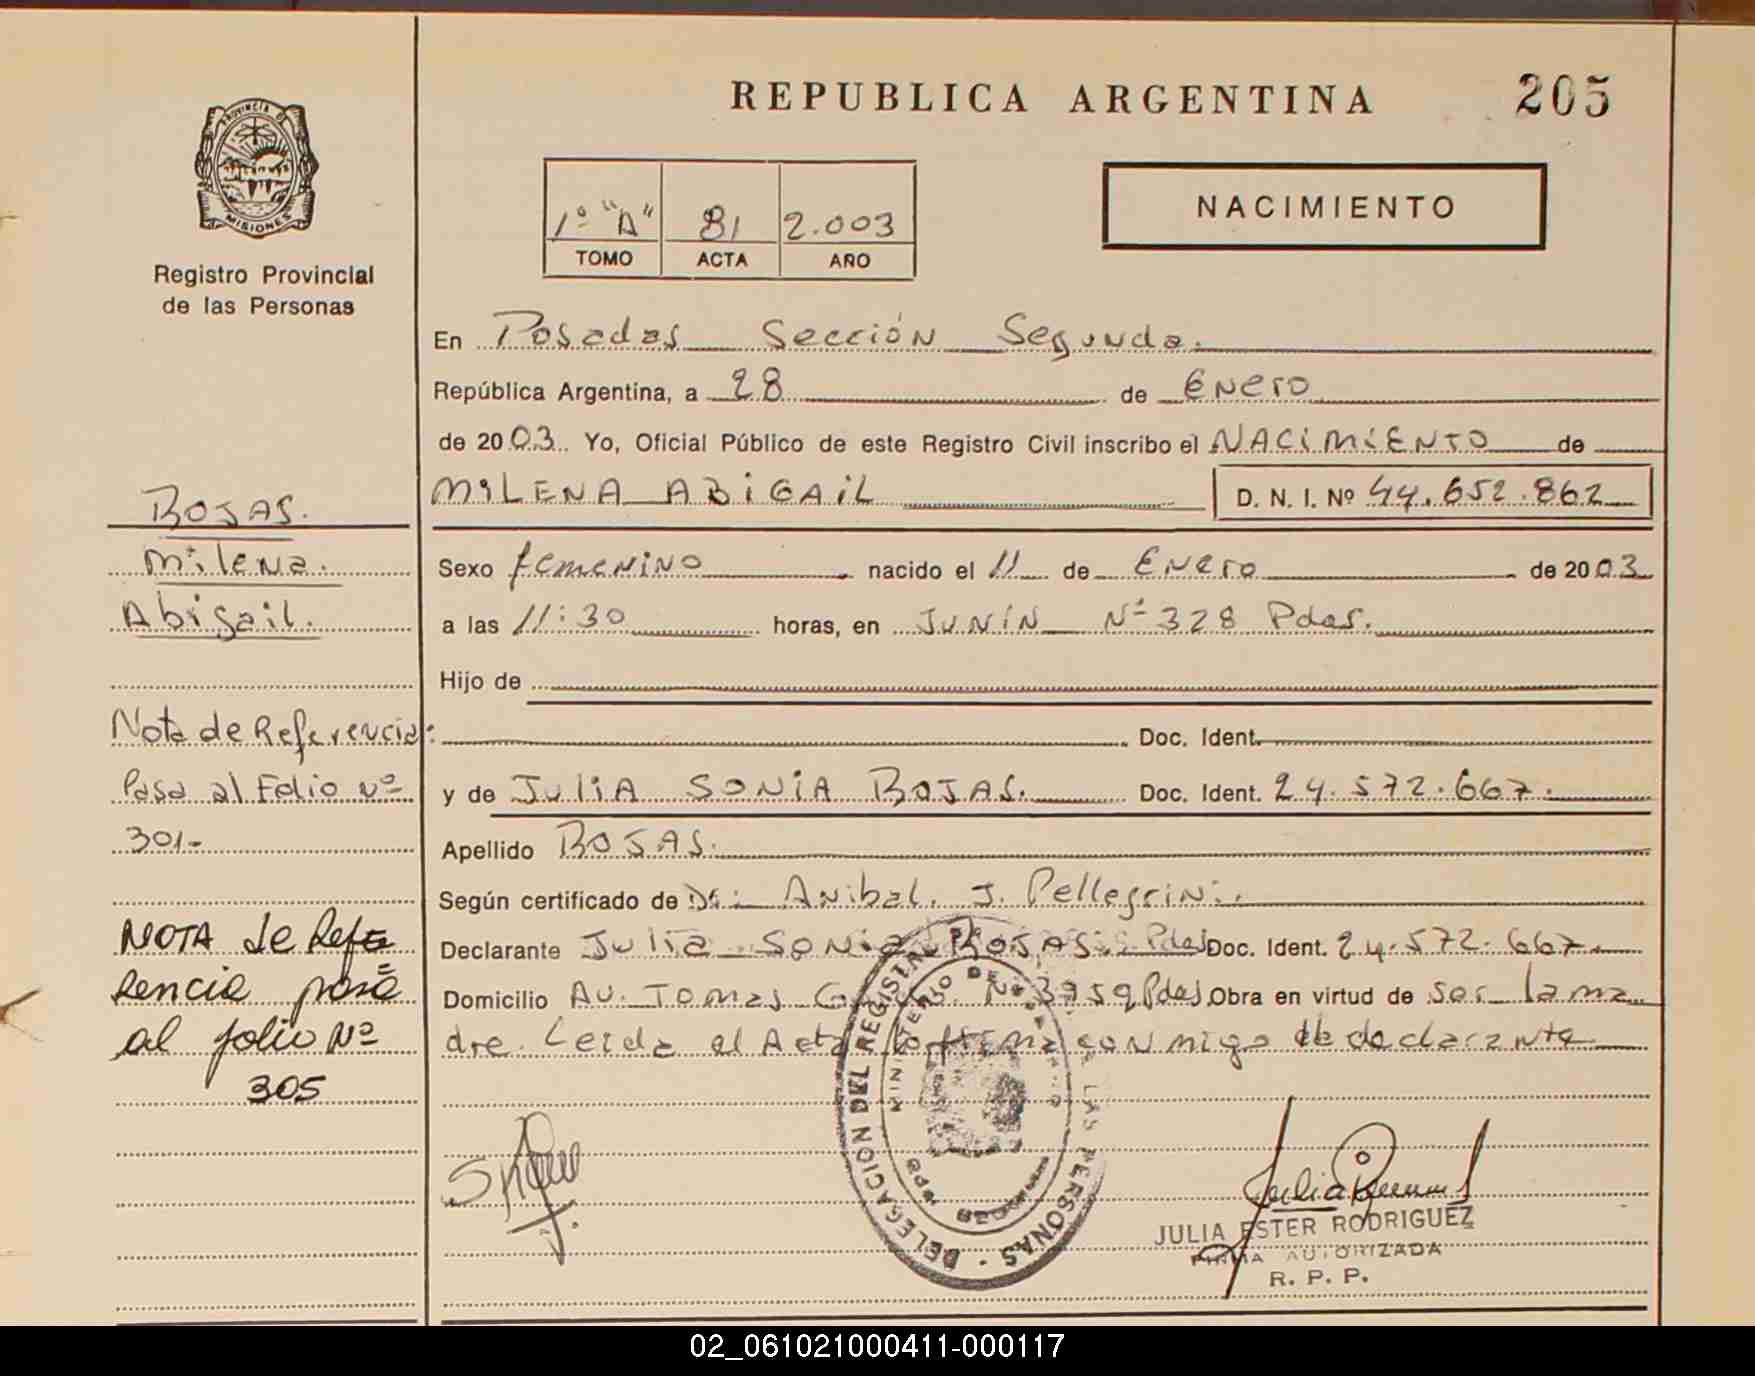 REPUBLICA ARGENTINA
205
PROVINCIA DE
MISIONES
Registro Provincial
de las Personas
1º "A" 81 2.003
TOMO ACTA AÑO
NACIMIENTO
En Posadas Sección Segunda.
República Argentina, a 28 de Enero
de 2003. Yo, Oficial Público de este Registro Civil inscribo el NACIMIENTO de
MILENA ABIGAIL D. N. I. Nº 44.652.862
Sexo femenino nacido el 11 de Enero de 2003
a las 11:30 horas, en JUNIN Nº 328 Pdas.
Hijo de
Doc. Ident.
y de JULIA SONIA ROJAS. Doc. Ident. 24.572.667.
Apellido ROJAS.
Según certificado de Dr: Anibal. J. Pellegrini.
Declarante Julia Sonia ROJAS Pdas Doc. Ident. 24.572.667.
Domicilio AU. TOMAS Nº 3959 Pdas. Obra en virtud de ser la ma
dre. Leida el Acta la firma conmigo la declarante
ROJAS.
Milena.
Abigail.
Nota de Referencia:
Pasa al Folio Nº
301-
NOTA de Refe
rencia pasa
al folio Nº
305
DELEGACION DEL REGISTRO DE LAS PERSONAS
MINISTERIO DE
JULIA ESTER RODRIGUEZ
FIRMA AUTORIZADA
R. P. P.
02_061021000411-000117